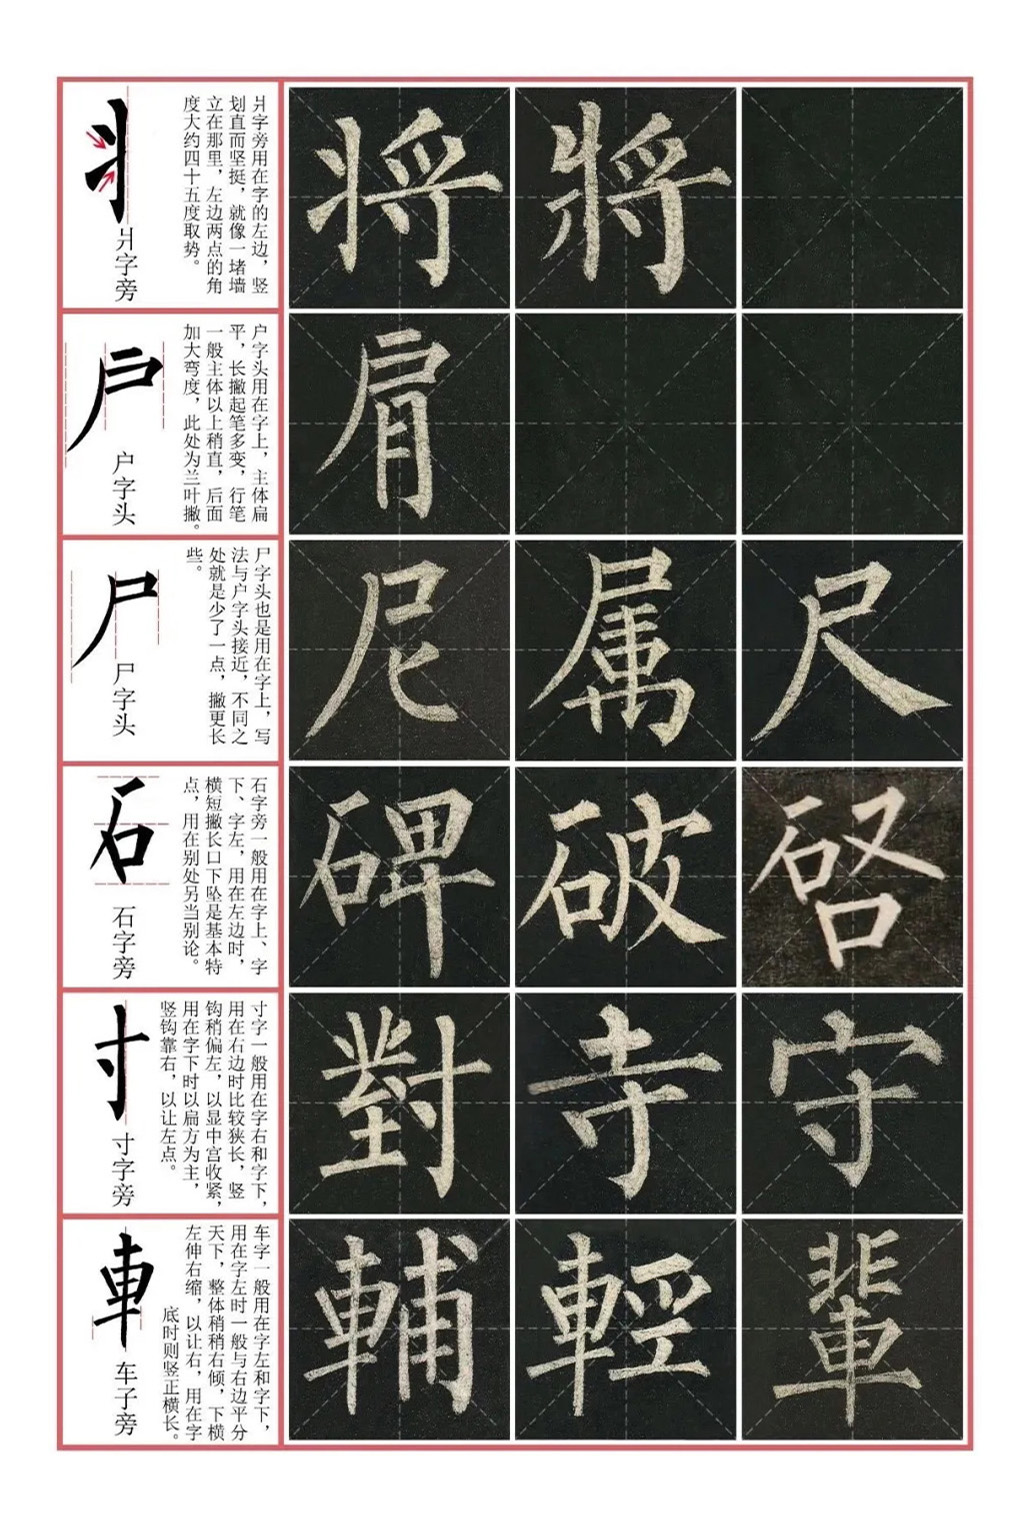 丬
爿字旁
爿字旁用在字的左边，竖
划直而坚挺，就像一堵墙
立在那里，左边两点的角
度大约四十五度取势。
将 將
户
户字头
户字头用在字上，主体扁
平，长撇起笔多变，行笔
一般主体以上稍直，后面
加大弯度，此处为兰叶撇。
肩
尸
尸字头
尸字头也是用在字上，写
法与户字头接近，不同之
处就是少了一点，撇更长
些。
尼 属 尺
石
石字旁
石字旁一般用在字上、字
下、字左，用在左边时，
横短撇长口下坠是基本特
点，用在别处另当别论。
碑 破 啓
寸
寸字旁
寸字一般用在字右和字下，
用在右边时比较狭长，竖
钩稍偏左，以显中宫收紧，
用在字下时以扁方为主，
竖钩靠右，以让左点。
對 寺 守
車
车子旁
车字一般用在字左和字下，
用在字左时一般与右边平分
天下，整体稍稍右倾，下横
左伸右缩，以让右，用在字
底时则竖正横长。
輔 輕 輩